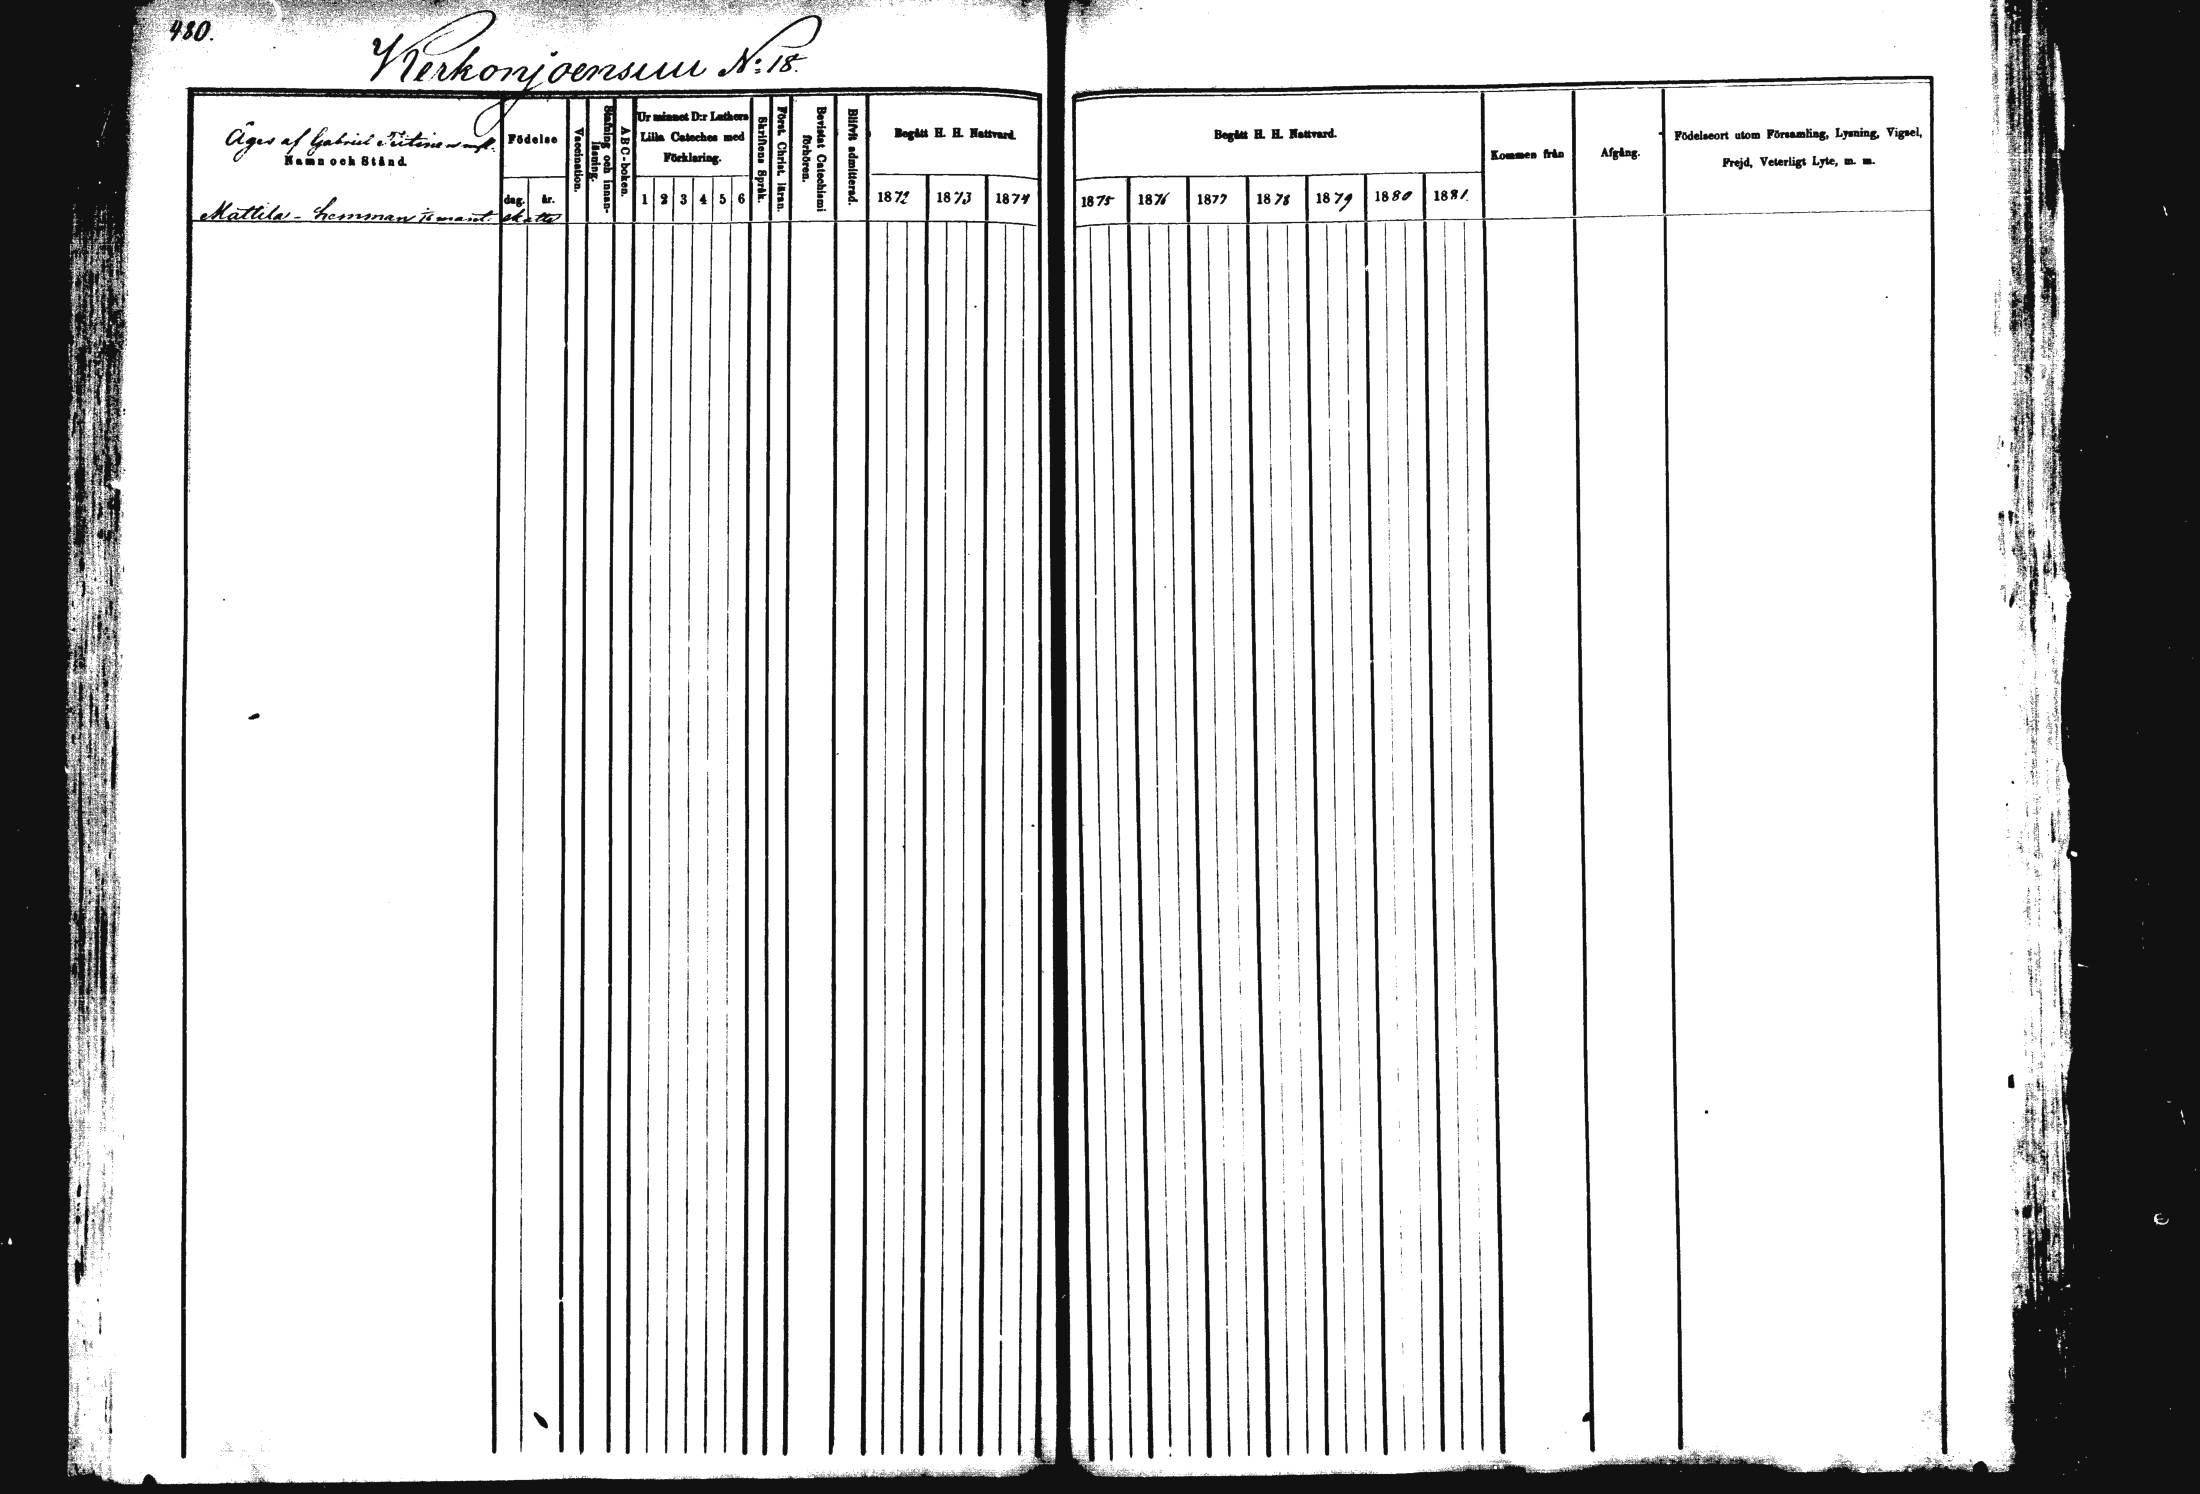 480.
Kerkonjoensuu No: 18.
Äges af Gabriel
Namn och Stånd.
Mattila - hemman skatte
Födelse
dag. år.
Vaccination.
Stafning och innan-
läsning.
ABC-boken.
Ur minnet D:r Luthers
Lilla Cateches med
Förklaring.
1 2 3 4 5 6
Skriftens Språk.
Först. Christ. läran.
Bevistat Catechismi
förhören.
Blifvit admitterad.
Begått H. H. Nattvard.
1872 1873 1874
Begått H. H. Nattvard.
1875 1876 1877 1878 1879 1880 1881
Kommen från
Afgång.
Födelseort utom Församling, Lysning, Vigsel,
Frejd, Veterligt Lyte, m. m.